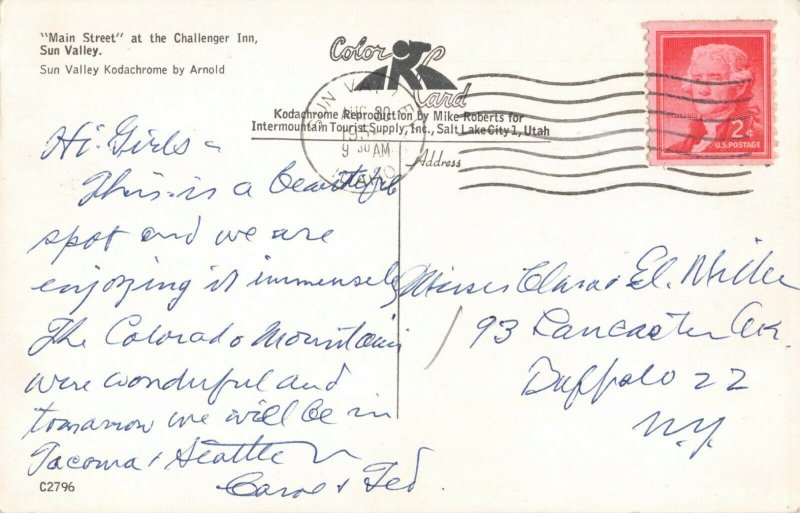 "Main Street" at the Challenger Inn,
Sun Valley.
Sun Valley Kodachrome by Arnold
Color
Card
Kodachrome Reproduction by Mike Roberts for
Intermountain Tourist Supply, Inc., Salt Lake City 1, Utah
SUN VALLEY
AUG 30
9 30 AM
IDAHO
2¢
U.S. POSTAGE
Address
Hi Girls -
This is a beautiful
spot and we are
enjoying it immensely
The Colorado Mountains
were wonderful and
tomorrow we will be in
Tacoma + Seattle
Carol + Ted.
Misses Clara + El. Miller
93 Lancaster Av.
Buffalo 22
N.Y.
C2796